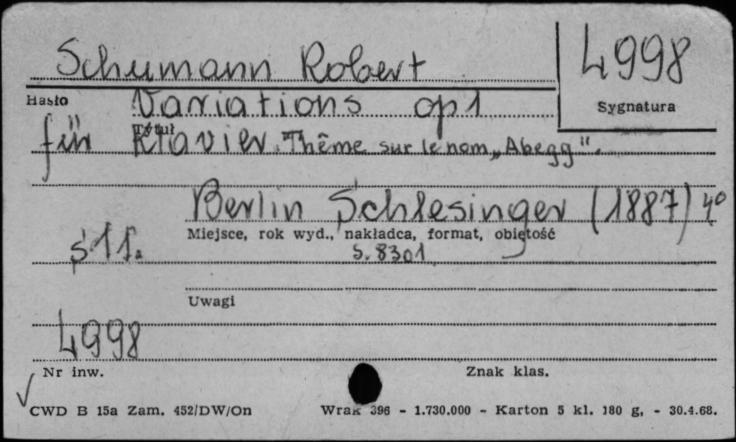 Schumann Robert
4998
Hasło
Variations op1
Sygnatura
Tytuł
für Klavier. Thême sur le nom „Abegg".
Berlin Schlesinger (1887) 4°
Miejsce, rok wyd., nakładca, format, objętość
s 11.
S. 8301
Uwagi
4998
Nr inw.
Znak klas.
CWD B 15a Zam. 452/DW/On
Wrak 396 - 1.730.000 - Karton 5 kl. 180 g, - 30.4.68.